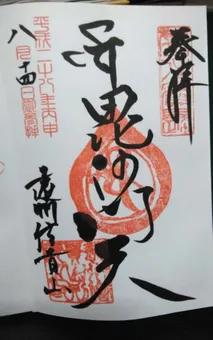 奉拝
毘沙門天
平成二十八年丙申
八月十四日
信貴山